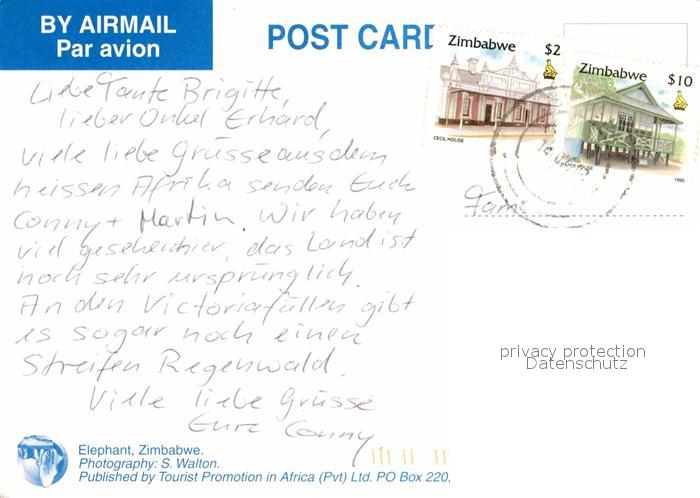 BY AIRMAIL
Par avion
POST CARD
Zimbabwe $2
CECIL HOUSE
Zimbabwe $10
PAPER HOUSE
1995
Liebe Tante Brigitte,
lieber Onkel Erhard,
viele liebe Grüsse aus dem
heissen Afrika senden Euch
Conny + Martin. Wir haben
viel gesehen hier, das Land ist
noch sehr ursprünglich.
An den Victoriafällen gibt
es sogar noch einen
Streifen Regenwald.
Viele liebe Grüsse
Eure Conny
Fam.
privacy protection
Datenschutz
Elephant, Zimbabwe.
Photography: S. Walton.
Published by Tourist Promotion in Africa (Pvt) Ltd. PO Box 220,